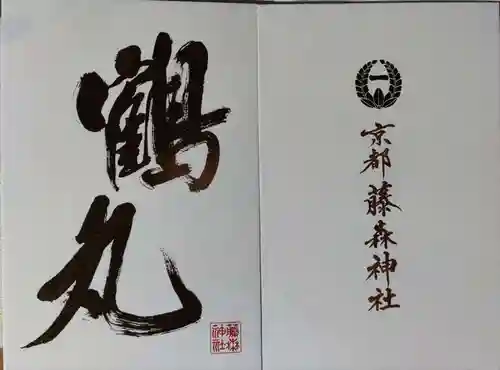 鶴丸
藤森
神社
一
京都 藤森神社